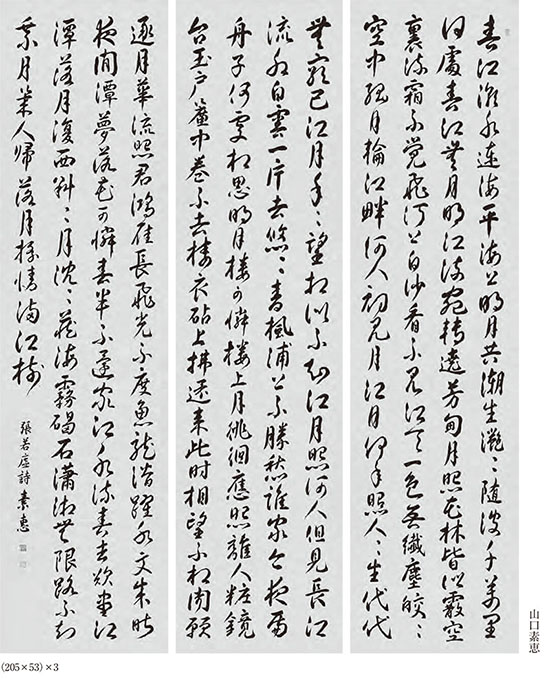 春江潮水連海平海上明月共潮生灧〻随波千萬里
何處春江無月明江流宛轉遶芳甸月照花林皆似霰空
裏流霜不覺飛汀上白沙看不見江天一色無纖塵皎〻
空中孤月輪江畔何人初見月江月何年照人〻生代代
無窮已江月年〻望相似不知江月照何人但見長江
流水白雲一片去悠〻青楓浦上不勝愁誰家今夜扁
舟子何處相思明月樓可憐樓上月徘徊應照離人粧鏡
台玉戸簾中巻不去檮衣砧上拂還来此时相望不相聞願
逐月華流照君鴻雁長飛光不度魚龍潜躍水文昨
夜閑潭夢落花可憐春半不還家江水流春去欲盡江
潭落月復西斜〻月沈〻蔵海霧碣石瀟湘無限路不知
乗月幾人帰落月揺情満江樹
張若虚詩 素恵
山口素恵
(205×53)×3